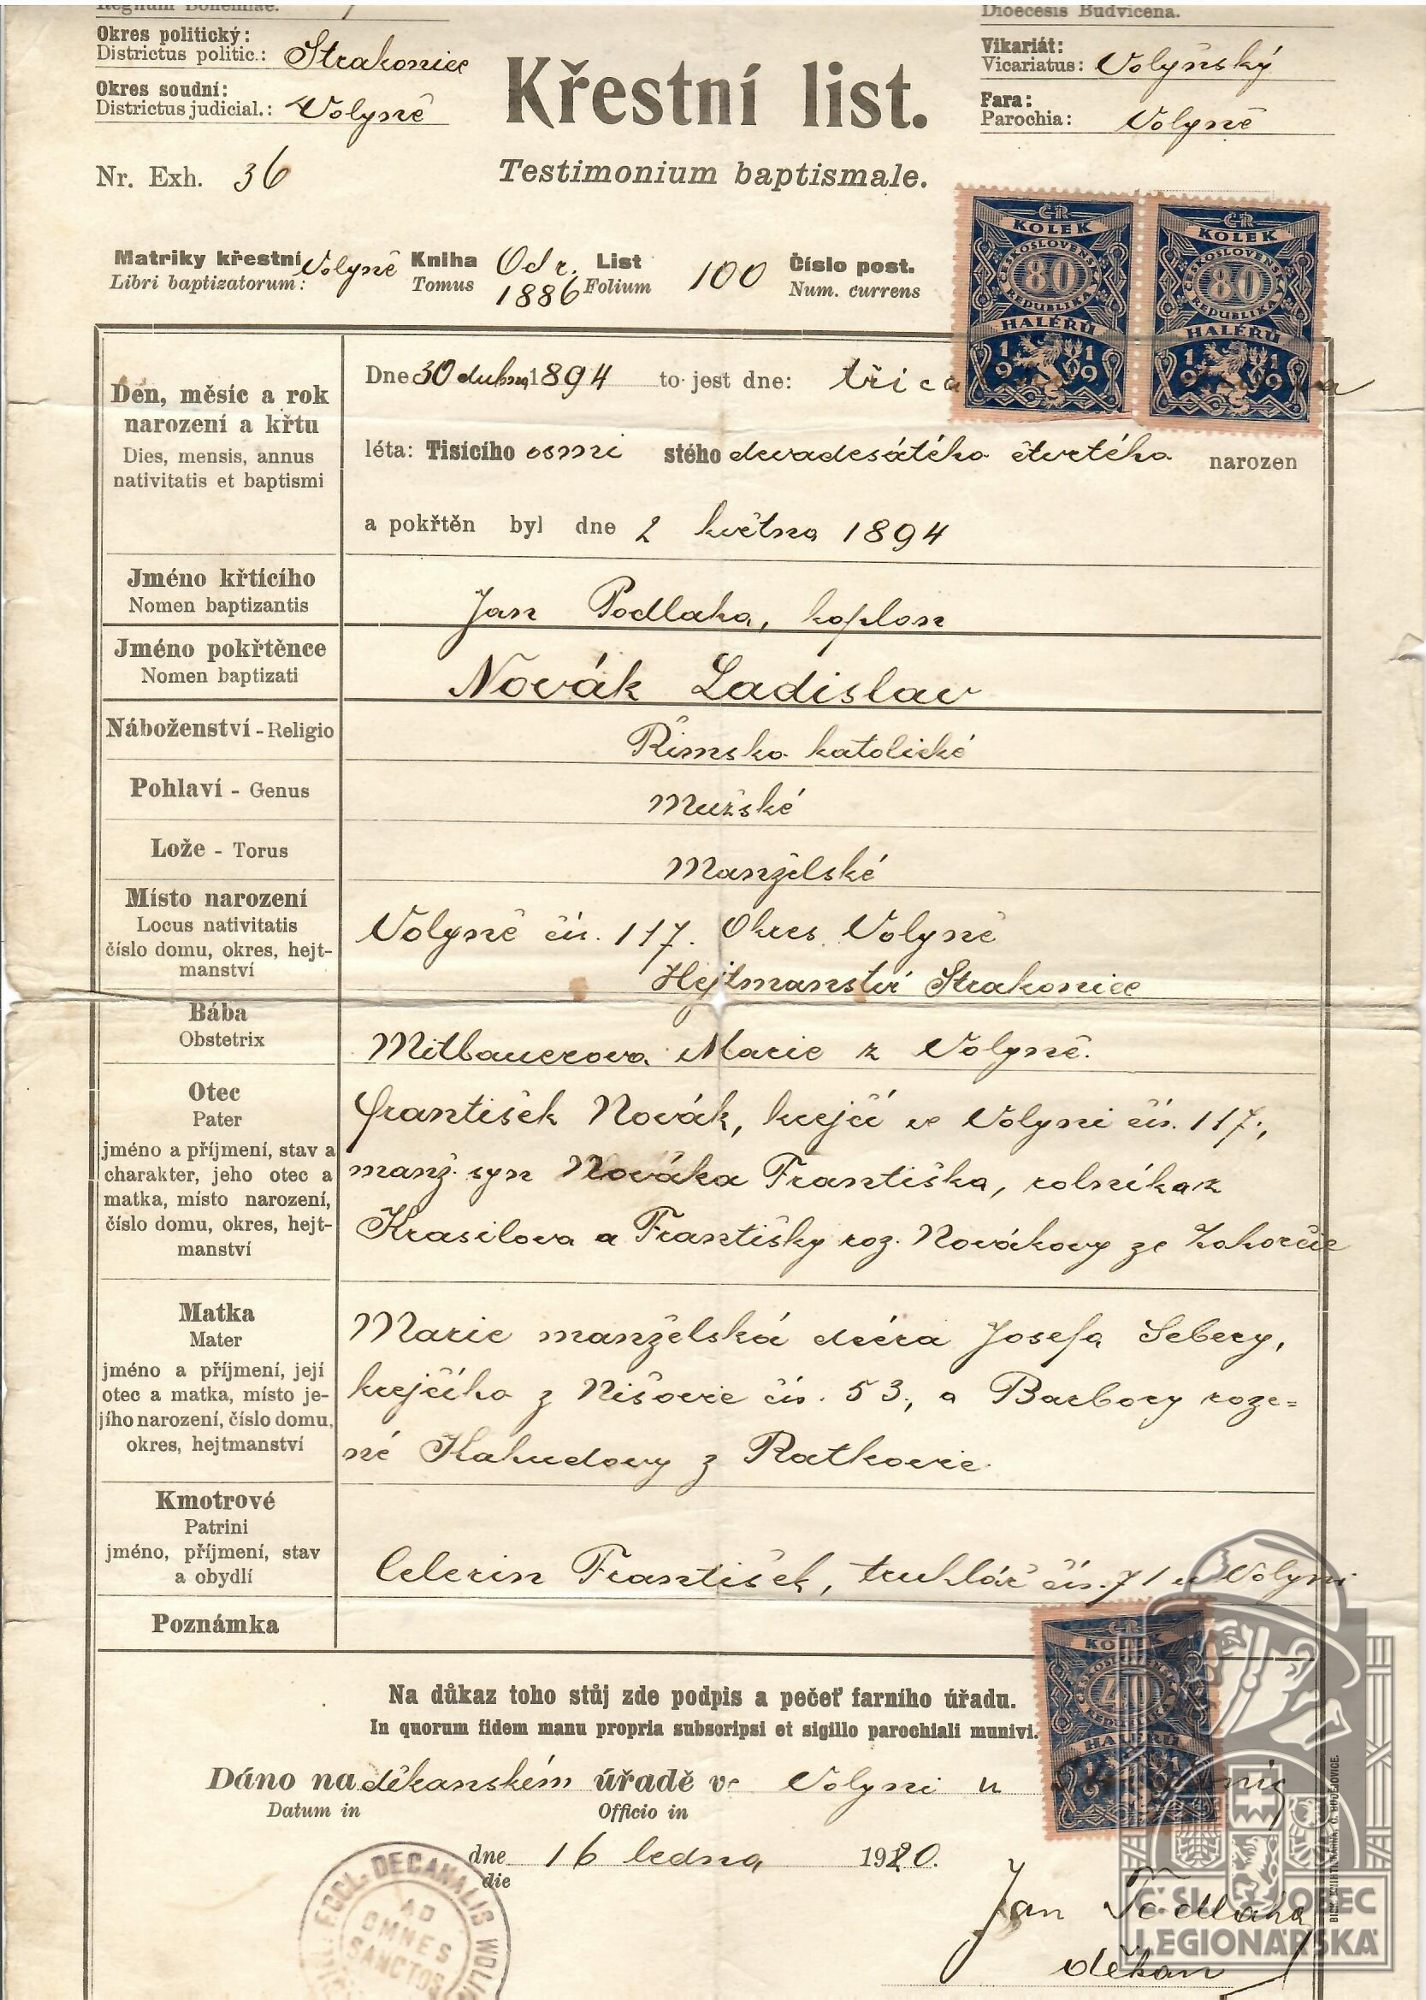 Regnum Bohemiae.
Dioecesis Budvicena.
Okres politický:
Districtus politic.: Strakonice
Okres soudní:
Districtus judicial.: Volyně
Křestní list.
Testimonium baptismale.
Vikariát:
Vicariatus: Volyňský
Fara:
Parochia: Volyně
Nr. Exh. 36
Matriky křestní Volyně Kniha Od r. List 100 Číslo post.
Libri baptizatorum: Tomus 1886 Folium Num. currens
ČR
KOLEK
ČESKOSLOVENSKÁ
80
REPUBLIKA
HALÉRŮ
1919
ČR
KOLEK
ČESKOSLOVENSKÁ
80
REPUBLIKA
HALÉRŮ
1919
Den, měsíc a rok
narození a křtu
Dies, mensis, annus
nativitatis et baptismi
Dne 30 dubna 1894 to jest dne:
léta: Tisícího osmi stého devadesátého čtvrtého narozen
a pokřtěn byl dne 2 května 1894
Jméno křtícího
Nomen baptizantis
Jan Podlaha, kaplan
Jméno pokřtěnce
Nomen baptizati
Novák Ladislav
Náboženství - Religio
Římsko katolické
Pohlaví - Genus
Mužské
Lože - Torus
Manželské
Místo narození
Locus nativitatis
číslo domu, okres, hejt-
manství
Volyně čís. 117. Okres Volyně
Hejtmanství Strakonice
Bába
Obstetrix
Mitbauerova Marie z Volyně.
Otec
Pater
jméno a příjmení, stav a
charakter, jeho otec a
matka, místo narození,
číslo domu, okres, hejt-
manství
František Novák, krejčí ve Volyni čís. 117.,
manž. syn Nováka Františka, rolníka z
Krasilova a Františky roz. Novákovy ze Zahorčic
Matka
Mater
jméno a příjmení, její
otec a matka, místo je-
jího narození, číslo domu,
okres, hejtmanství
Marie manželská dcera Josefa Sebery,
krejčího z Nišovic čís. 53., a Barbory roze=
né Kahudovy z Ratkovic
Kmotrové
Patrini
jméno, příjmení, stav
a obydlí
Celerin František, truhlář čís. 71 u Volyni
Poznámka
ČR
KOLEK
40
REPUBLIKA
HALÉRŮ
Na důkaz toho stůj zde podpis a pečeť farního úřadu.
In quorum fidem manu propria subscripsi et sigillo parochiali munivi.
Dáno na děkanském úřadě ve Volyni u
Datum in Officio in
dne 16 ledna 1920.
die
ECCL. DECANALIS WOLIN
AD
OMNES
SANCTOS
Jan Podlaha
děkan
Č SL OBEC
LEGIONÁŘSKÁ